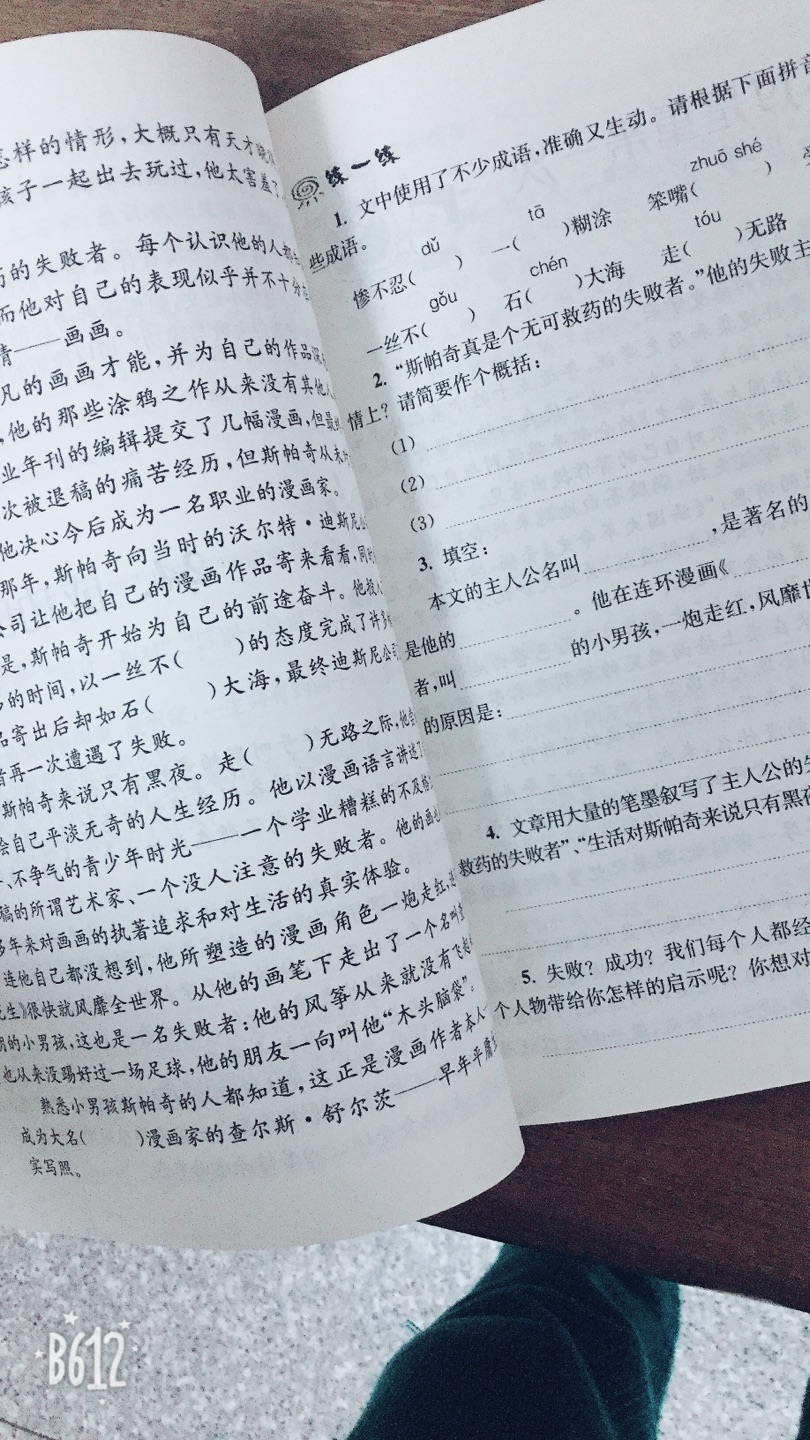 怎样的情形，大概只有天才
孩子一起出去玩过，他太害羞了
的失败者。每个认识他的人都
而他对自己的表现似乎并不十分
情——画画。
凡的画画才能，并为自己的作品
，他的那些涂鸦之作从来没有其他
业年刊的编辑提交了几幅漫画，但最
次被退稿的痛苦经历，但斯帕奇从未
他决心今后成为一名职业的漫画家。
那年，斯帕奇向当时的沃尔特·迪斯尼
公司让他把自己的漫画作品寄来看看，同
是，斯帕奇开始为自己的前途奋斗。他投
的时间，以一丝不(　　)的态度完成了许多
品寄出后却如石(　　)大海，最终迪斯尼公司
者再一次遭遇了失败。
斯帕奇来说只有黑夜。走(　　)无路之际，他
绘自己平淡无奇的人生经历。他以漫画语言讲述了
、不争气的青少年时光——一个学业糟糕的不及格
稿的所谓艺术家、一个没人注意的失败者。他的画
多年来对画画的执著追求和对生活的真实体验。
连他自己都没想到，他所塑造的漫画角色一炮走红，
生》很快就风靡全世界。从他的画笔下走出了一个名叫
的小男孩，这也是一名失败者：他的风筝从来就没有飞起
也从来没踢好过一场足球，他的朋友一向叫他“木头脑袋”。
熟悉小男孩斯帕奇的人都知道，这正是漫画作者本人
成为大名(　　)漫画家的查尔斯·舒尔茨——早年平庸
实写照。
练一练
1. 文中使用了不少成语，准确又生动。请根据下面拼音
些成语。
dǔ　tā　zhuō shé
惨不忍(　　)　一(　　)糊涂　笨嘴(　　)
gǒu　chén　tóu
一丝不(　　)　石(　　)大海　走(　　)无路
2. “斯帕奇真是个无可救药的失败者。”他的失败主
情上？请简要作个概括：
(1)
(2)
(3)
3. 填空：
本文的主人公名叫　　，是著名的
是他的　　。他在连环漫画《
者，叫　　的小男孩，一炮走红，风靡世
的原因是：
4. 文章用大量的笔墨叙写了主人公的
救药的失败者”、“生活对斯帕奇来说只有黑夜
5. 失败？成功？我们每个人都经
个人物带给你怎样的启示呢？你想对
B612